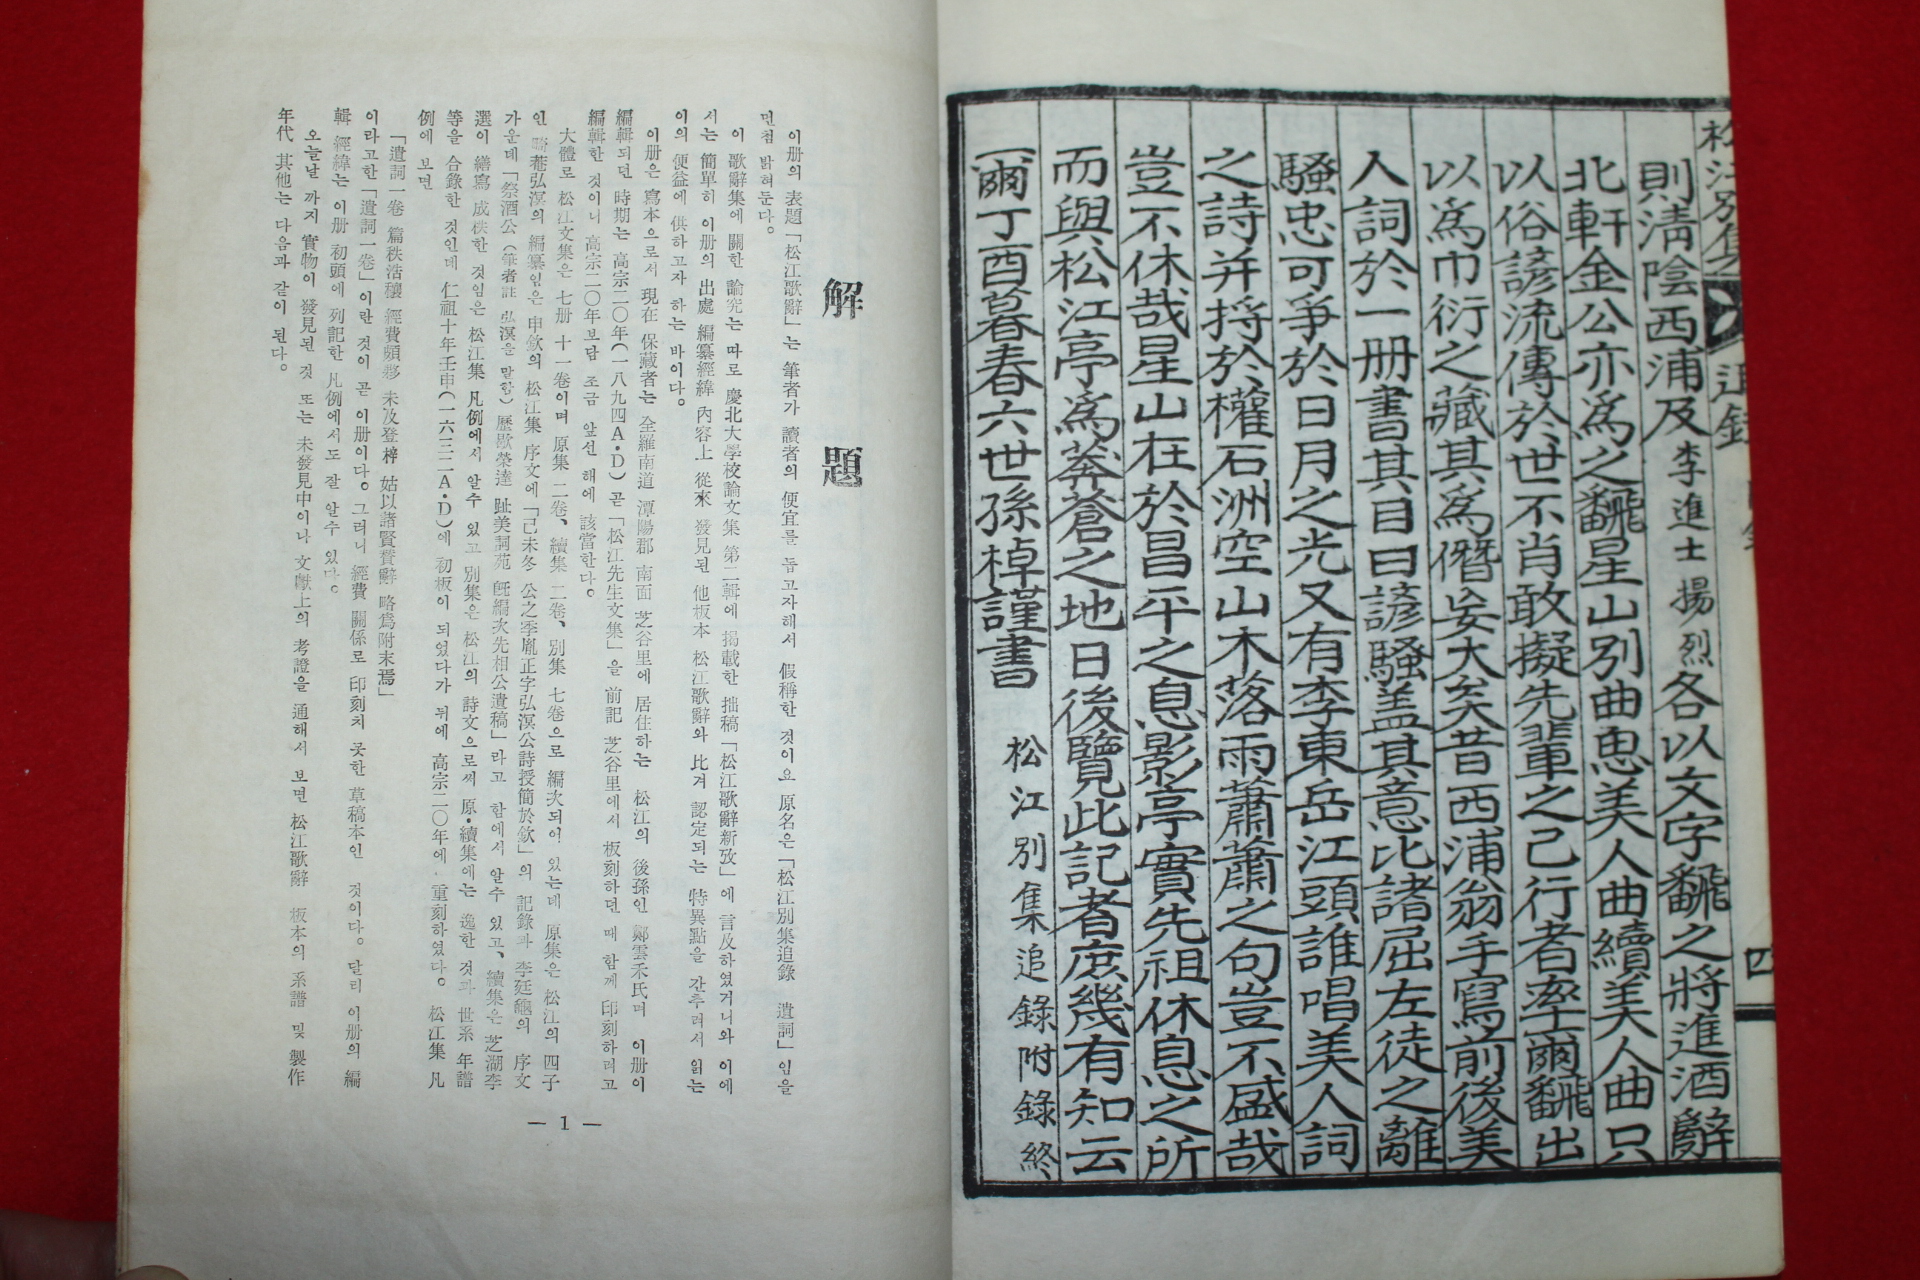 松江別集 追錄 四
則淸陰西浦及李進士揚烈各以文字飜之將進酒辭
北軒金公亦爲之飜星山別曲思美人曲續美人曲只
以俗諺流傳於世不肖敢擬先輩之已行者率爾飜出
以爲巾衍之藏其爲僭妄大矣昔西浦翁手寫前後美
人詞於一册書其目曰諺騷盖其意比諸屈左徒之離
騷忠可爭於日月之光又有李東岳江頭誰唱美人詞
之詩并捋於權石洲空山木落雨蕭蕭之句豈不盛哉
豈不休哉星山在於昌平之息影亭實先祖休息之所
而與松江亭爲莽蒼之地日後覽此記者庶幾有知云
爾丁酉暮春六世孫棹謹書
松江別集追錄附錄終
解題
이册의 表題「松江歌辭」는 筆者가 讀者의 便宜를 돕고자해서 假稱한 것이요 原名은「松江別集追錄 遺詞」임을
먼첨 밝혀둔다。
이 歌辭集에 關한 論究는 따로 慶北大學校論文集 第二輯에 揭載한 拙稿「松江歌辭新攷」에 言及하였거니와 이에
서는 簡單히 이册의 出處 編纂經緯 內容上 從來 發見된 他板本 松江歌辭와 比겨 認定되는 特異點을 간추려서 읽는
이의 便益에 供하고자 하는 바이다。
이册은 寫本으로서 現在 保藏者는 全羅南道 潭陽郡 南面 芝谷里에 居住하는 松江의 後孫인 鄭雲禾氏며 이册이
編輯되던 時期는 高宗二〇年(一八九四A·D) 곧「松江先生文集」을 前記 芝谷里에서 板刻하던 때 함께 印刻하려고
編輯한 것이니 高宗二〇年보담 조금 앞선 해에 該當한다。
大體로 松江文集은 七册 十一卷이며 原集 二卷、續集 二卷、別集 七卷으로 編次되어 있는데 原集은 松江의 四子
인 畸菴弘溟의 編纂임은 申欽의 松江集 序文에「己未冬 公之季胤正字弘溟公詩授簡於欽」의 記錄과 李廷龜의 序文
가운데「祭酒公(筆者註 弘溟을 말함) 歷敭榮達 趾美詞苑 旣編次先相公遺稿」라고 함에서 알수 있고、續集은 芝湖李
選이 繕寫 成秩한 것임은 松江集 凡例에서 알수 있고 別集은 松江의 詩文으로써 原·續集에는 逸한 것과 世系 年譜
等을 合錄한 것인데 仁祖十年壬申(一六三二A·D)에 初板이 되었다가 뒤에 高宗二〇年에 重刻하였다。 松江集 凡
例에 보면
「遺詞一卷 篇秩浩穰 經費頗夥 未及登梓 姑以諸賢贊辭 略爲附末焉」
이라고한「遺詞一卷」이란 것이 곧 이册이다。그러니 經費 關係로 印刻치 못한 草稿本인 것이다。달리 이册의 編
輯 經緯는 이册 初頭에 列記한 凡例에서도 잘 알수 있다。
오늘날 까지 實物이 發見된 것 또는 未發見中이나 文獻上의 考證을 通해서 보면 松江歌辭 板本의 系譜 및 製作
年代 其他는 다음과 같이 된다。
— 1 —